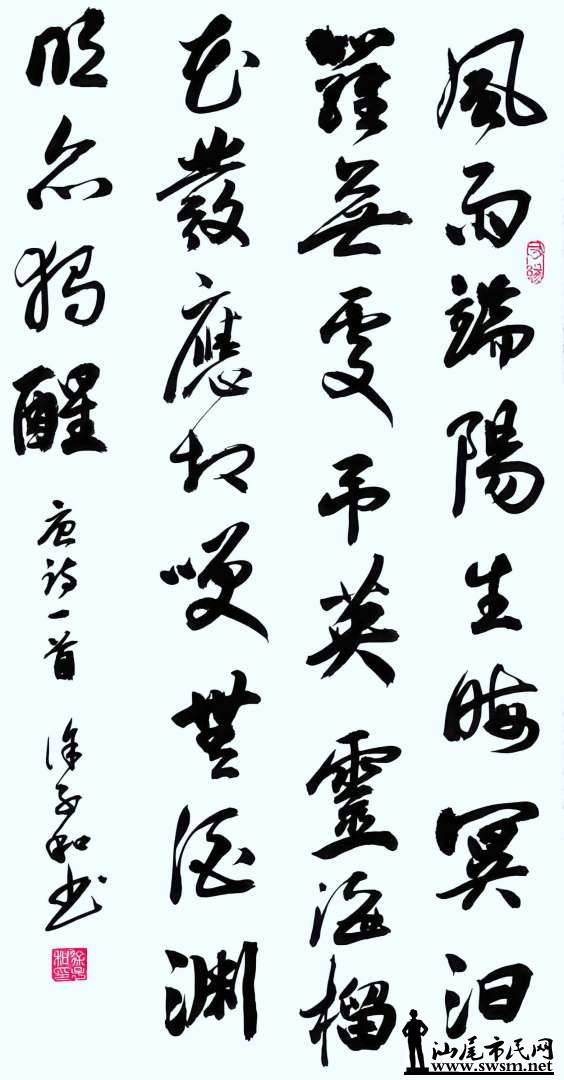 風雨端陽生晦冥汨
羅無處吊英靈海榴
花發應相咲無酒淵
明亦獨醒 唐诗一首 徐子和书
汕尾市民网
www.swsm.net